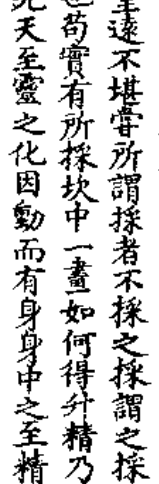 遠不堪嘗所謂採者不採之採謂之採
苟實有所採坎中一畫如何得升精乃
天至靈之化因動而有身身中之至精